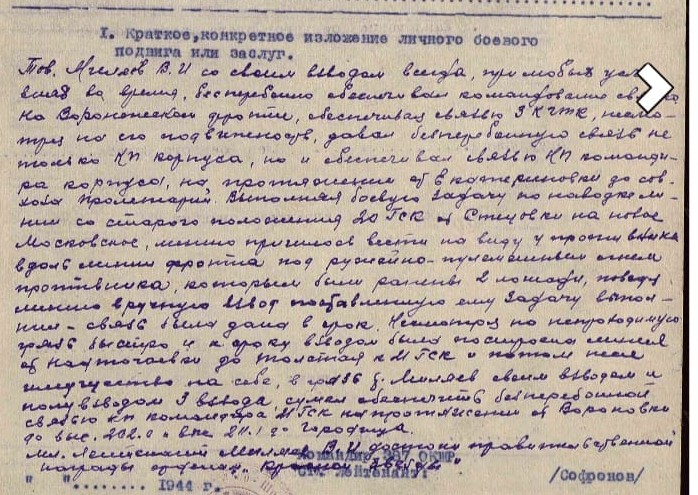 I. Краткое, конкретное изложение личного боевого
подвига или заслуг.
Тов. В.И со своим взводом всегда, при любых
во время, бесперебойно обеспечивал командование
на Воронежском фронте, обеспечивая связью 3 КГТК,
на его подвижность, давал бесперебойную связь не
только КП корпуса, но и обеспечивал связью КП команди-
ра корпуса, на протяжении от в Катериновки до сов-
хоза Пролетарий. Выполняя боевую задачу по наводке ли-
нии со старого положения 20 ГСК от Стецовки на новое
Московское, линию пришлось вести на виду у противника
вдоль линии фронта под ружейно-пулеметным огнем
противника, которым были ранены 2 лошади,
линию вручную взвод поставленную ему задачу выпол-
нил - связь была дана в срок. Несмотря на непроходимую
грязь быстро и к сроку взводом была построена линия
от до Толстая к ГСК и потом неся
имущество на себе, в Миляев своим взводом и
полувзводом 3 взвода, сумел обеспечить бесперебойной
связью КП командира ГСК на протяжении от Вороновки
до выс. 202.0 и до Городища.
мл. Лейтенант Миляев В.И достоин правительственной
награды ордена „Красной звезды"
Командир ОКШР
Ст. Лейтенант: /Софронов/
" "........ 1944 г.